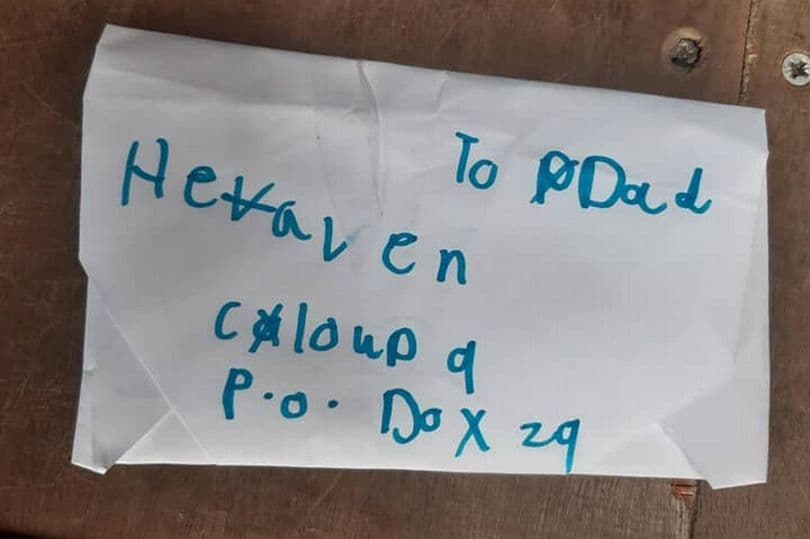 To Dad
Heaven
Cloup 9
P.o. Dox 29